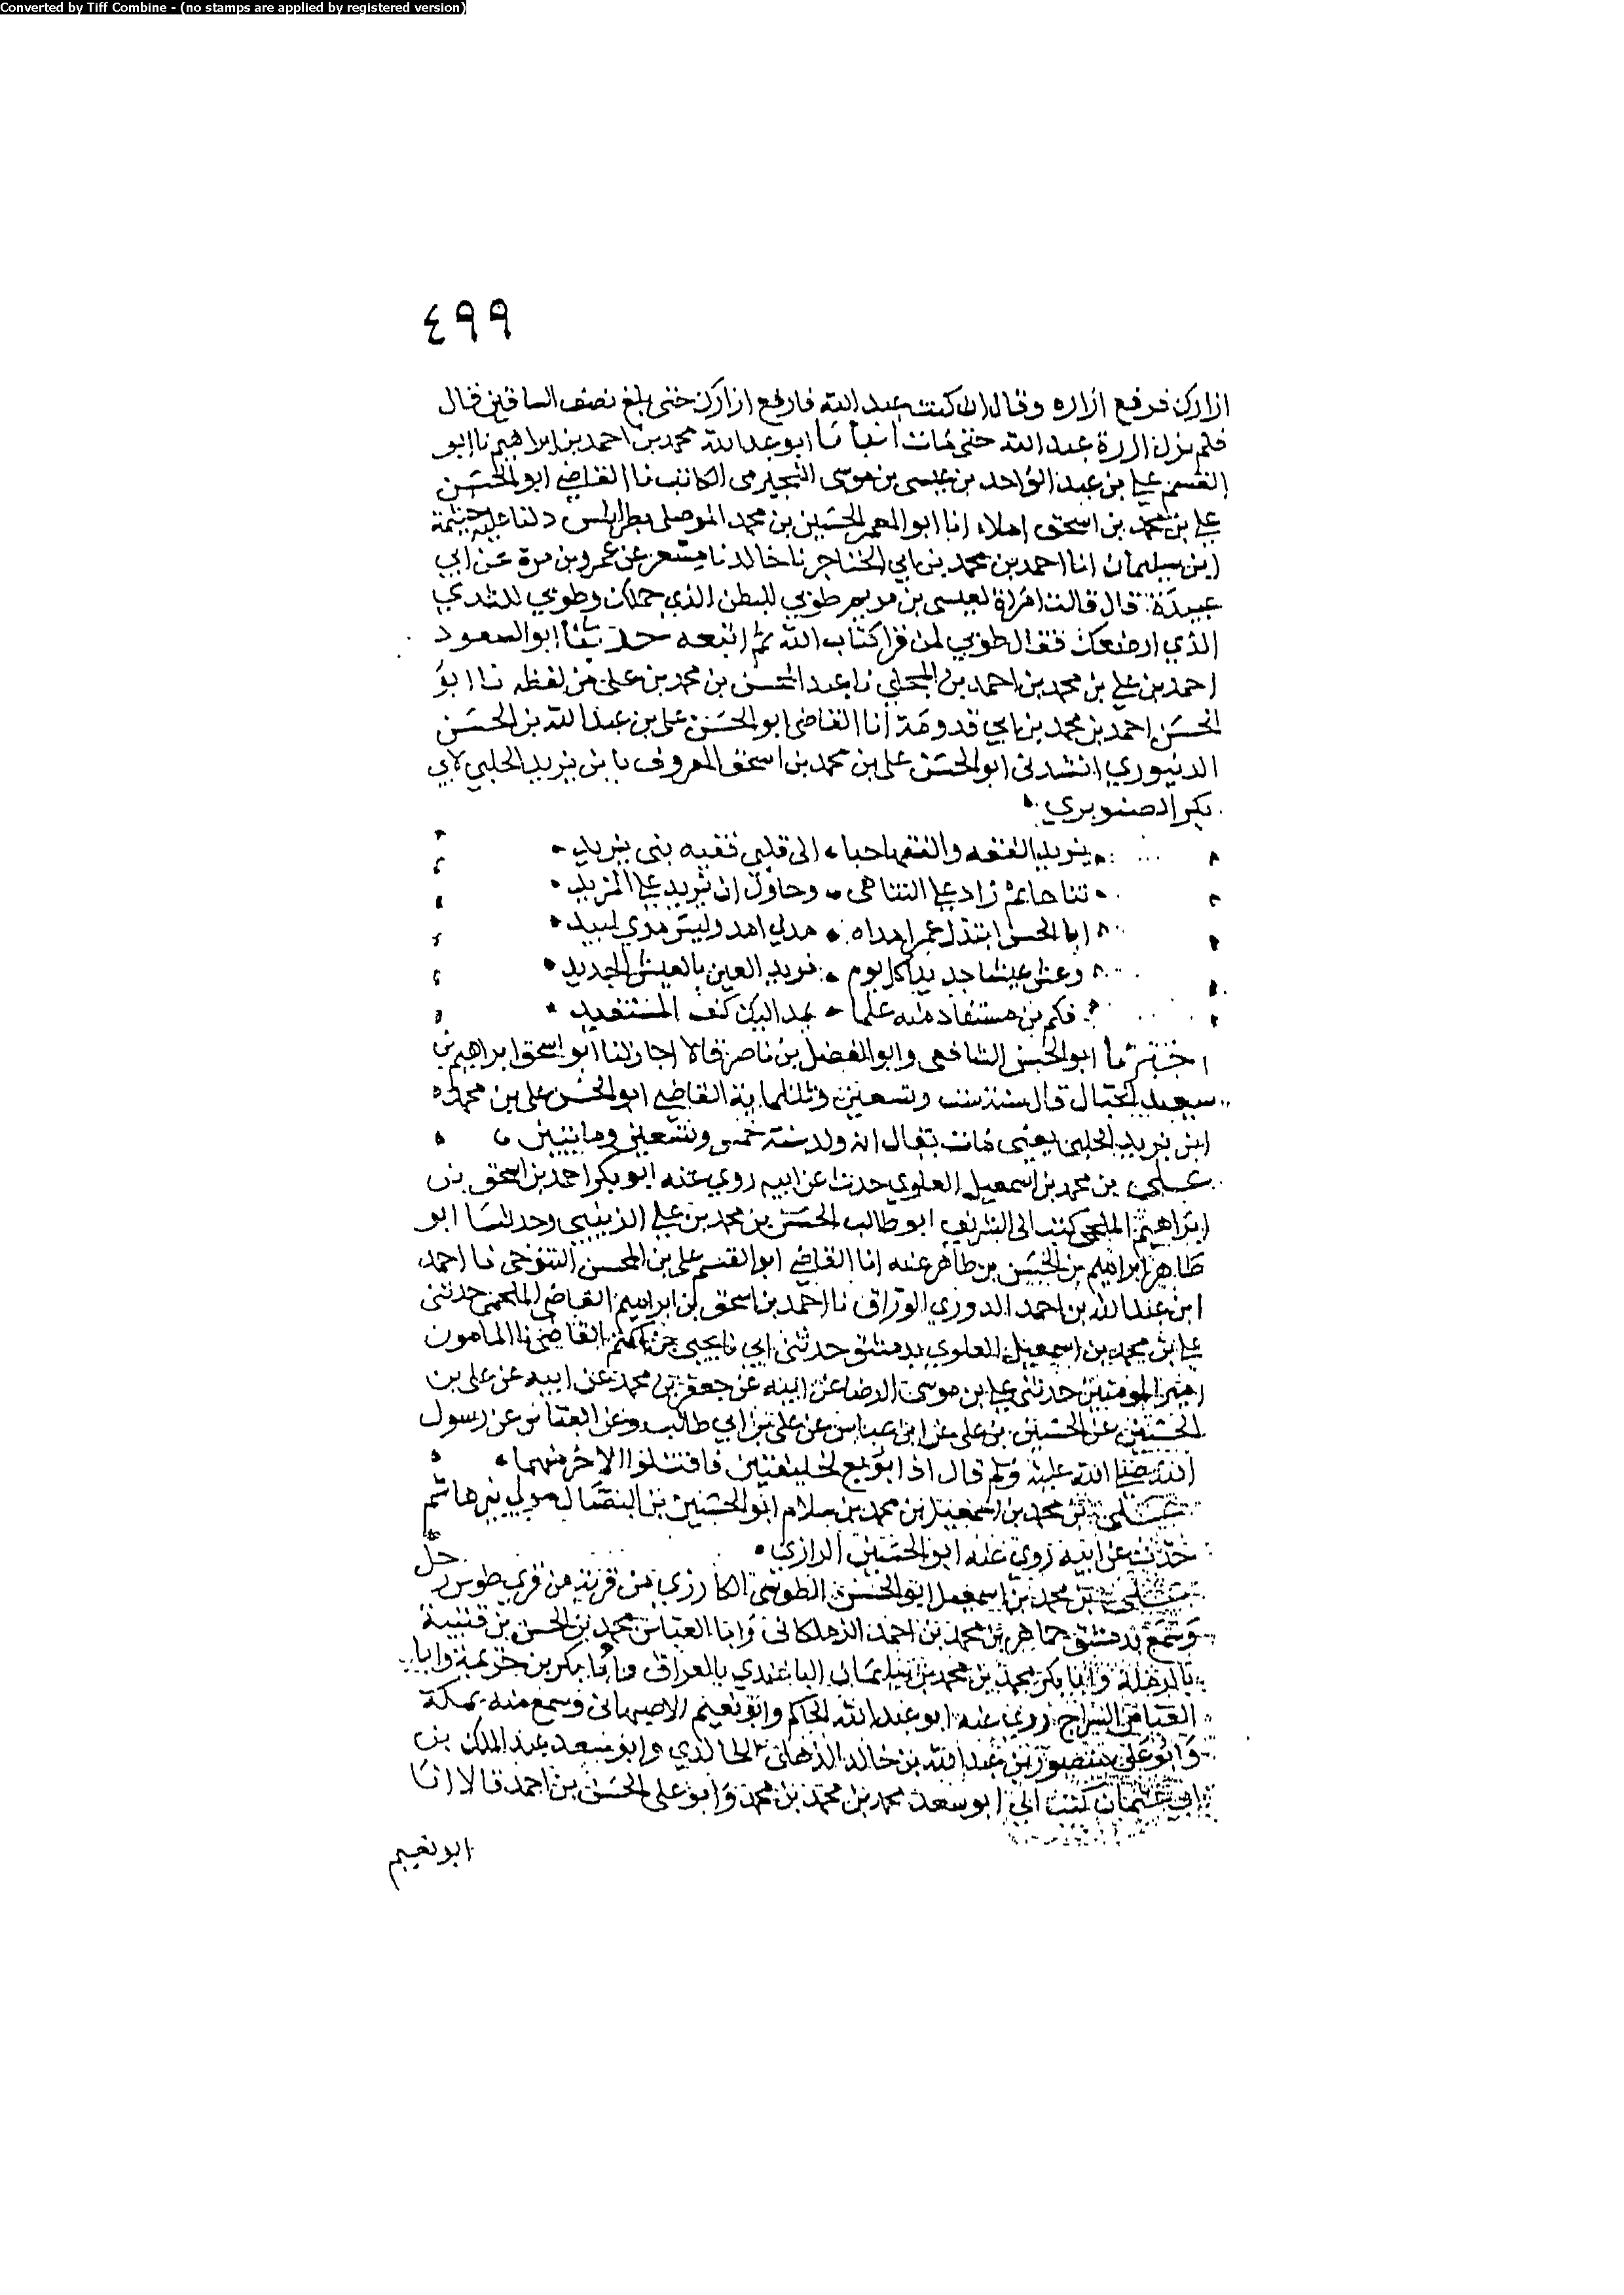 Converted by Tiff Combine - (no stamps are applied by registered version)
٤٩٩
ازارك فرفع ازاره وقال ان كنت عبد الله فارفع ازارك حتى بلغ نصف الساقين قال
فلم تزل ازرة عبد الله حتى مات انبانا ابو عبد الله محمد بن احمد بن ابراهيم نا ابو
القسم علي بن عبد الواحد بن عيسى بن موسى النجيرمى الكاتب نا القاضي ابو الحسن
علي بن محمد بن اسحق املاء انا ابو المعمر الحسين بن محمد الموصلي بطرابلس خيثمة
ابن سليمان انا احمد بن محمد بن ابي الخناجر نا خالد نا مسعر عن عمرو بن مرة عن ابي
عبيدة قال قالت امراة لعيسى بن مريم طوبي للبطن الذي حملك وطوبي للثدي
الذي ارضعك فقال طوبي لمن قرا كتاب الله ثم اتبعه حدثنا ابو السعود
احمد بن علي بن محمد بن احمد بن المجلي نا عبد المحسن بن محمد بن على من لفظه نا ابو
الحسن احمد بن محمد بن ابي قدومة انا القاضي ابو الحسن على بن عبد الله بن الحسن
الدنيوري انشدنى ابو الحسن على بن محمد بن اسحق المعروف بابن يزيد الحلبي لابي
بكر الصنوبري
يزيد الفقه والفقها حبا الى قلبي فقيه بنى يزيد
تناها ثم زاد علي التناهى وحاول ان يزيد علي المزيد
ابا الحسن ابتذل عمرا مداه مدلي امد وليس مدي لبيد
وعش عيشا جديدا كل يوم قرير العين بالعيش الجديد
فكم من مستفاد منه علما يمد اليك كف المستفيد
اخبرنا ابو الحسن الشافعى وابو الفضل بن ناصر قالا اجاز لنا ابو اسحق ابراهيم بن
سعيد الحبال قال سنة ست وتسعين وثلثماية القاضي ابو الحسن على بن محمد
ابن يزيد الحلبي يعنى مات يقال انه ولد سنة خمس وتسعين ومايتين
علي بن محمد بن اسمعيل العلوي حدث عن ابيه روي عنه ابو بكر احمد بن اسحق بن
ابراهيم الملحمى كتب الى الشريف ابو طالب الحسن بن محمد بن علي الزينبي وحدثنا ابو
طاهر ابراهيم بن الحسن بن طاهر عنه انا القاضي ابو القسم على بن المحسن التنوخى نا احمد
ابن عبد الله بن احمد الدوري الوراق نا احمد بن اسحق بن ابراهيم القاضى الملحمى حدثنى
علي بن محمد بن اسمعيل العلوي بدمشق حدثنى ابي نا يحيى بن اكثم القاضى نا المامون
امير المومنين حدثنى علي بن موسى الرضا عن ابيه عن جعفر بن محمد عن ابيه عن على بن
الحسين عن الحسين بن على عن ابن عباس عن على بن ابي طالب وعن العباس عن رسول
الله صلى الله عليه وسلم قال اذا بويع لخليفتين فاقتلوا الاخر منهما
علي بن محمد بن اسمعيل بن محمد بن سلام ابو الحسين بن البقال مولي بني هاشم
حدث عن ابيه روي عنه ابو الحسين الرازي
علي بن محمد بن اسمعيل ابو الحسن الطوسى الكارزي من قرية من قري طوس رحل
وسمع بدمشق جماهر بن محمد بن احمد الزملكانى وابا العباس محمد بن الحسن بن قتيبة
بالرملة وابا بكر محمد بن محمد بن سليمان الباغندي بالعراق وابا بكر بن خزيمة وابا
العباس السراج روي عنه ابو عبد الله الحاكم وابو نعيم الاصبهانى وسمع منه بمكة
وابو علي منصور بن عبد الله بن خالد الذهلى الخالدي وابو سعد عبد الملك بن
ابي عثمان كتب الي ابو سعد محمد بن محمد بن محمد وابو على الحسن بن احمد قالا انا
ابو نعيم